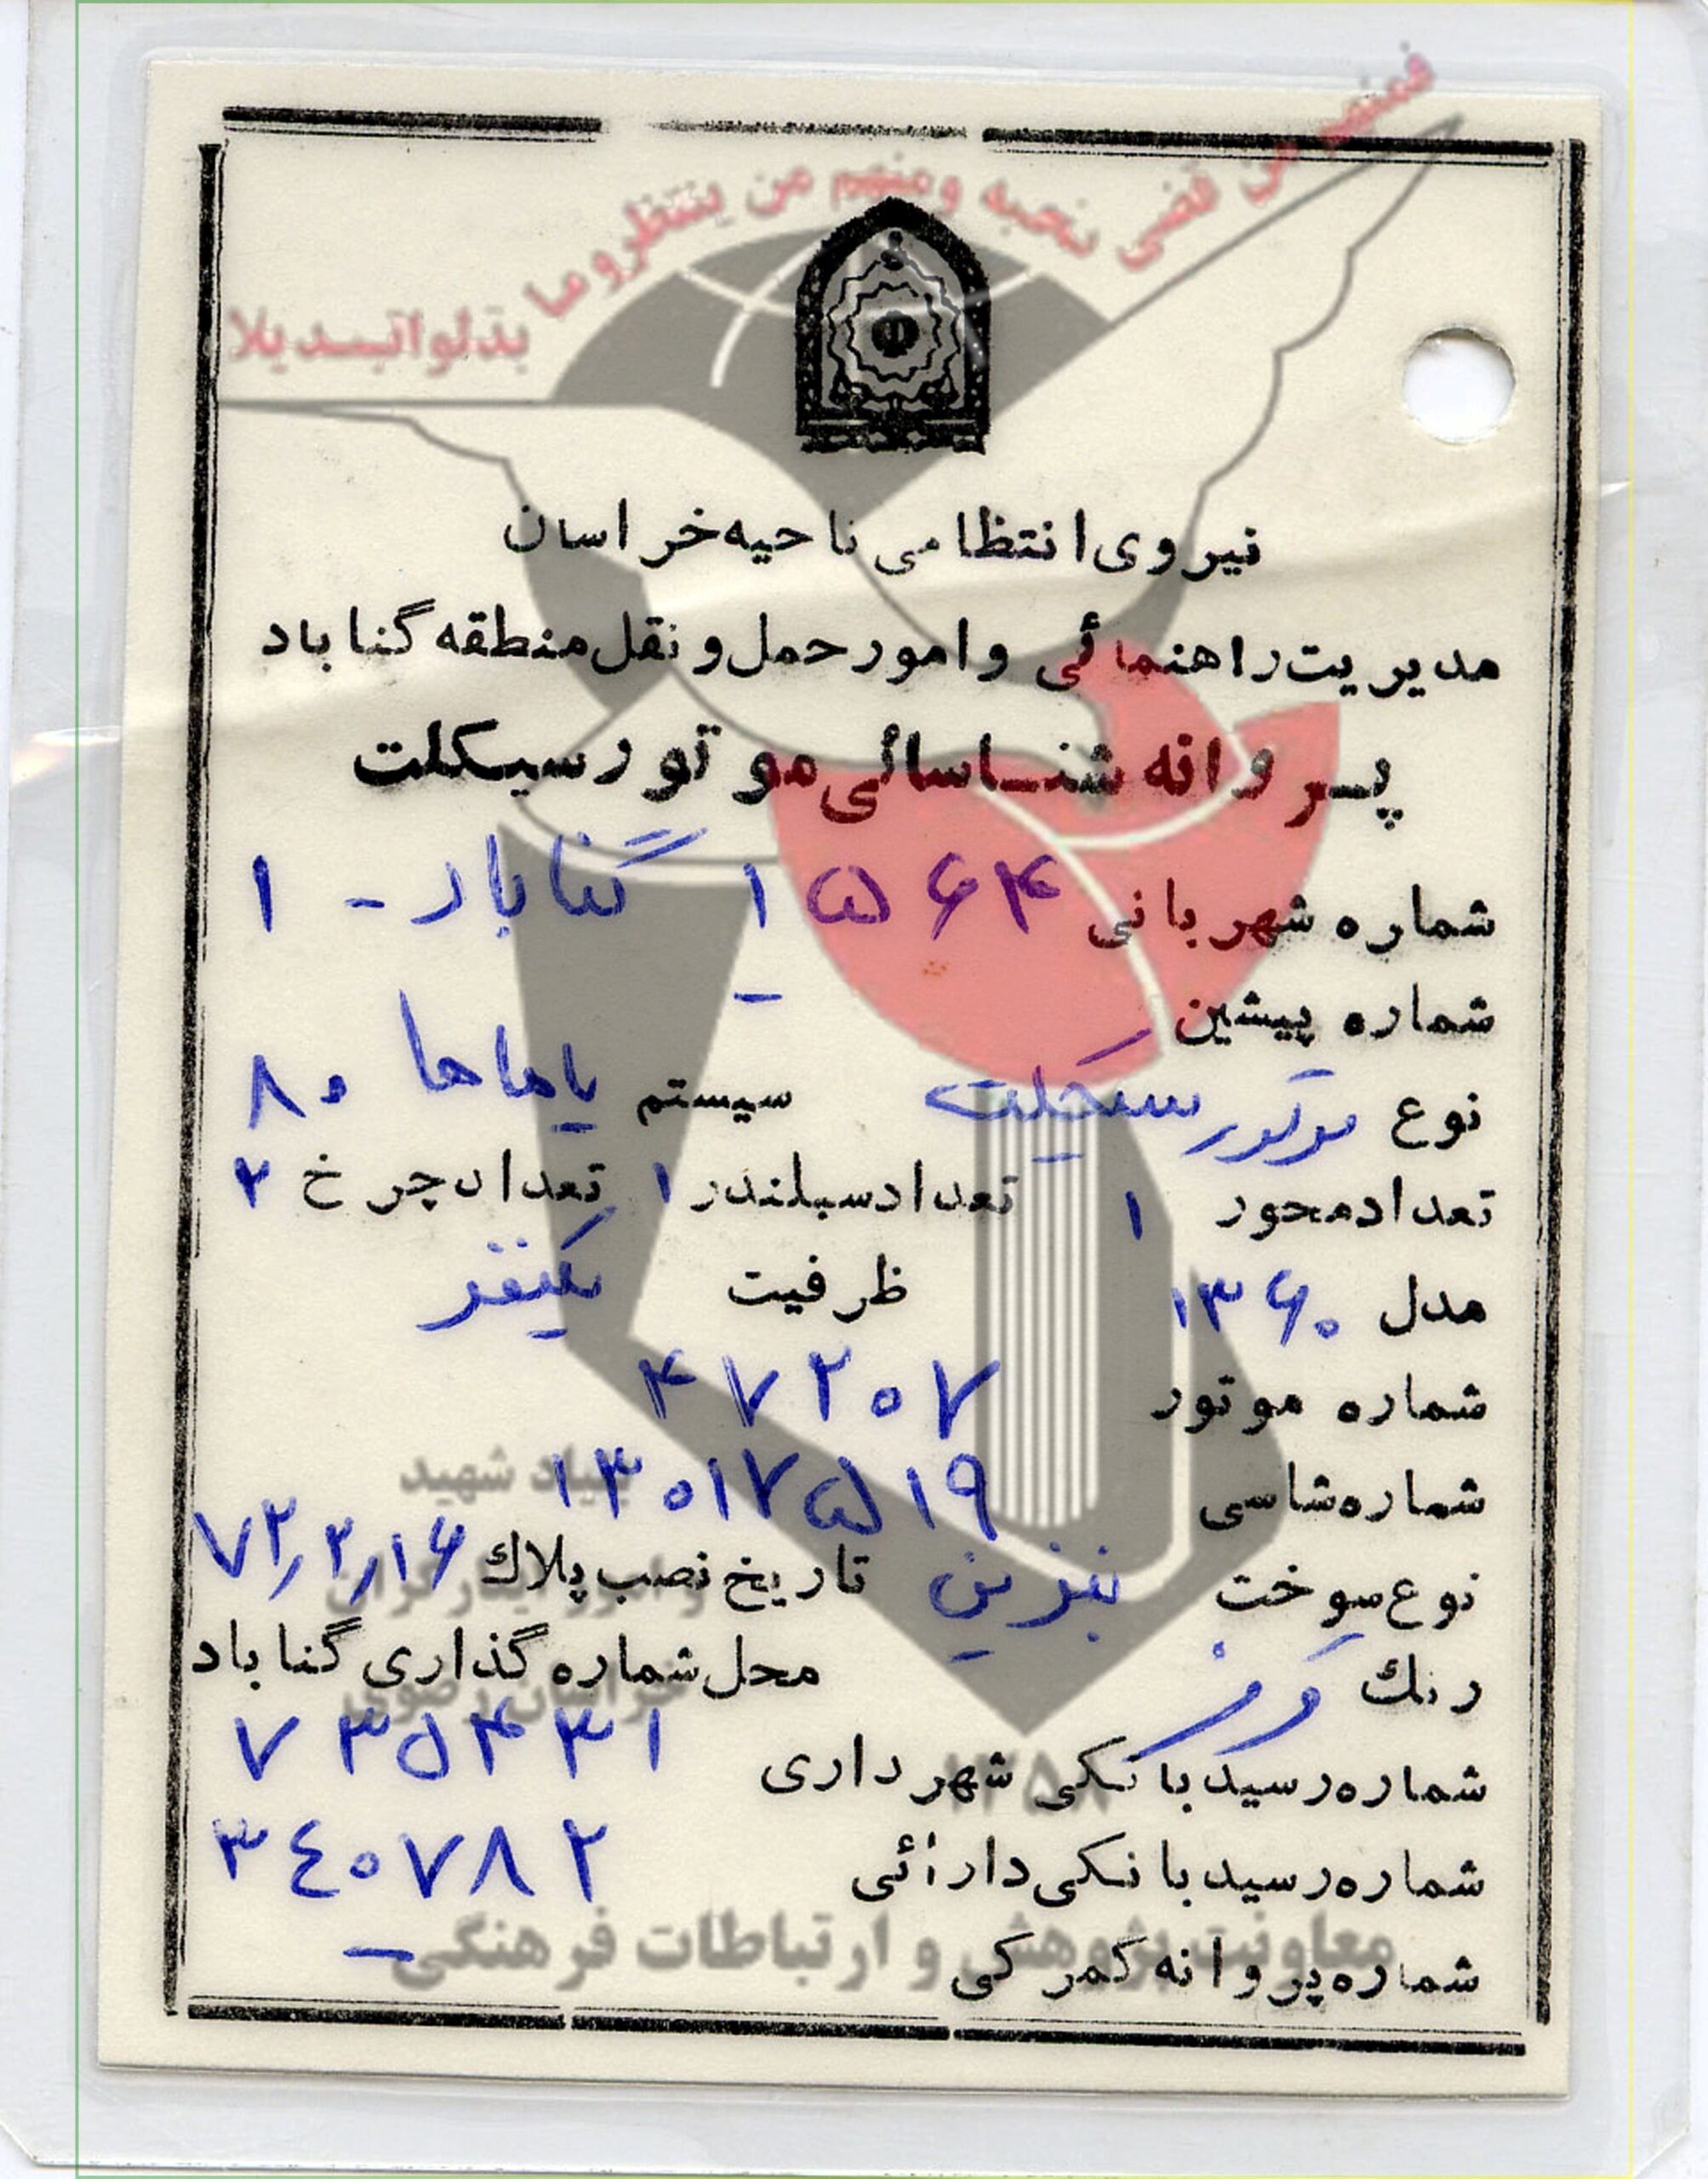 فمنهم من قضی نحبه ومنهم من ینتظر وما بدلوا تبدیلا
نیروی انتظامی ناحیه خراسان
مدیریت راهنمائی و امور حمل و نقل منطقه گناباد
پروانه شناسائی موتورسیکلت
شماره شهربانی ۱۵۶۴ گناباد - ۱
شماره پیشین -
نوع موتورسیکلت سیستم یاماها ۸۰
تعداد محور ۱ تعداد سیلندر ۱ تعداد چرخ ۲
مدل ۱۳۶۰ ظرفیت یکنفر
شماره موتور ۴۷۲۰۷
بنیاد شهید
شماره شاسی ۱۳۰۱۷۵۱۹
نوع سوخت بنزین تاریخ نصب پلاك ۷۲٫۲٫۱۶
و امور ایثارگران
رنك قرمز محل شماره گذاری گناباد
خراسان رضوی
شماره رسید بانکی شهرداری ۷۳۵۴۳۱
شماره رسید بانکی دارائی ۳۴۰۷۸۲
معاونت پژوهش و ارتباطات فرهنگی
شماره پروانه گمرکی -